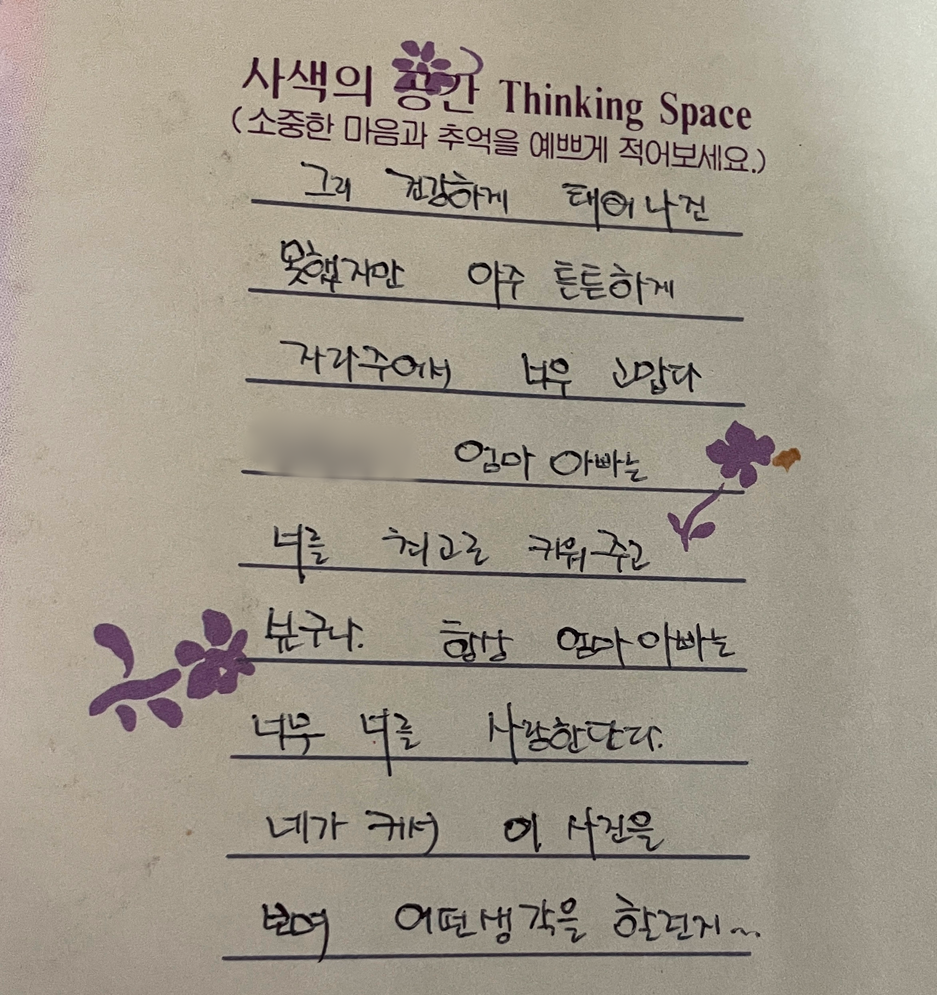 사색의 공간 Thinking Space
(소중한 마음과 추억을 예쁘게 적어보세요.)
그리 건강하게 태어나진
못했지만 아주 튼튼하게
자라주어서 너무 고맙다
엄마 아빠는
너를 최고로 키워주고
싶구나. 항상 엄마 아빠는
너무 너를 사랑한단다.
네가 커서 이 사진을
보며 어떤 생각을 할런지~